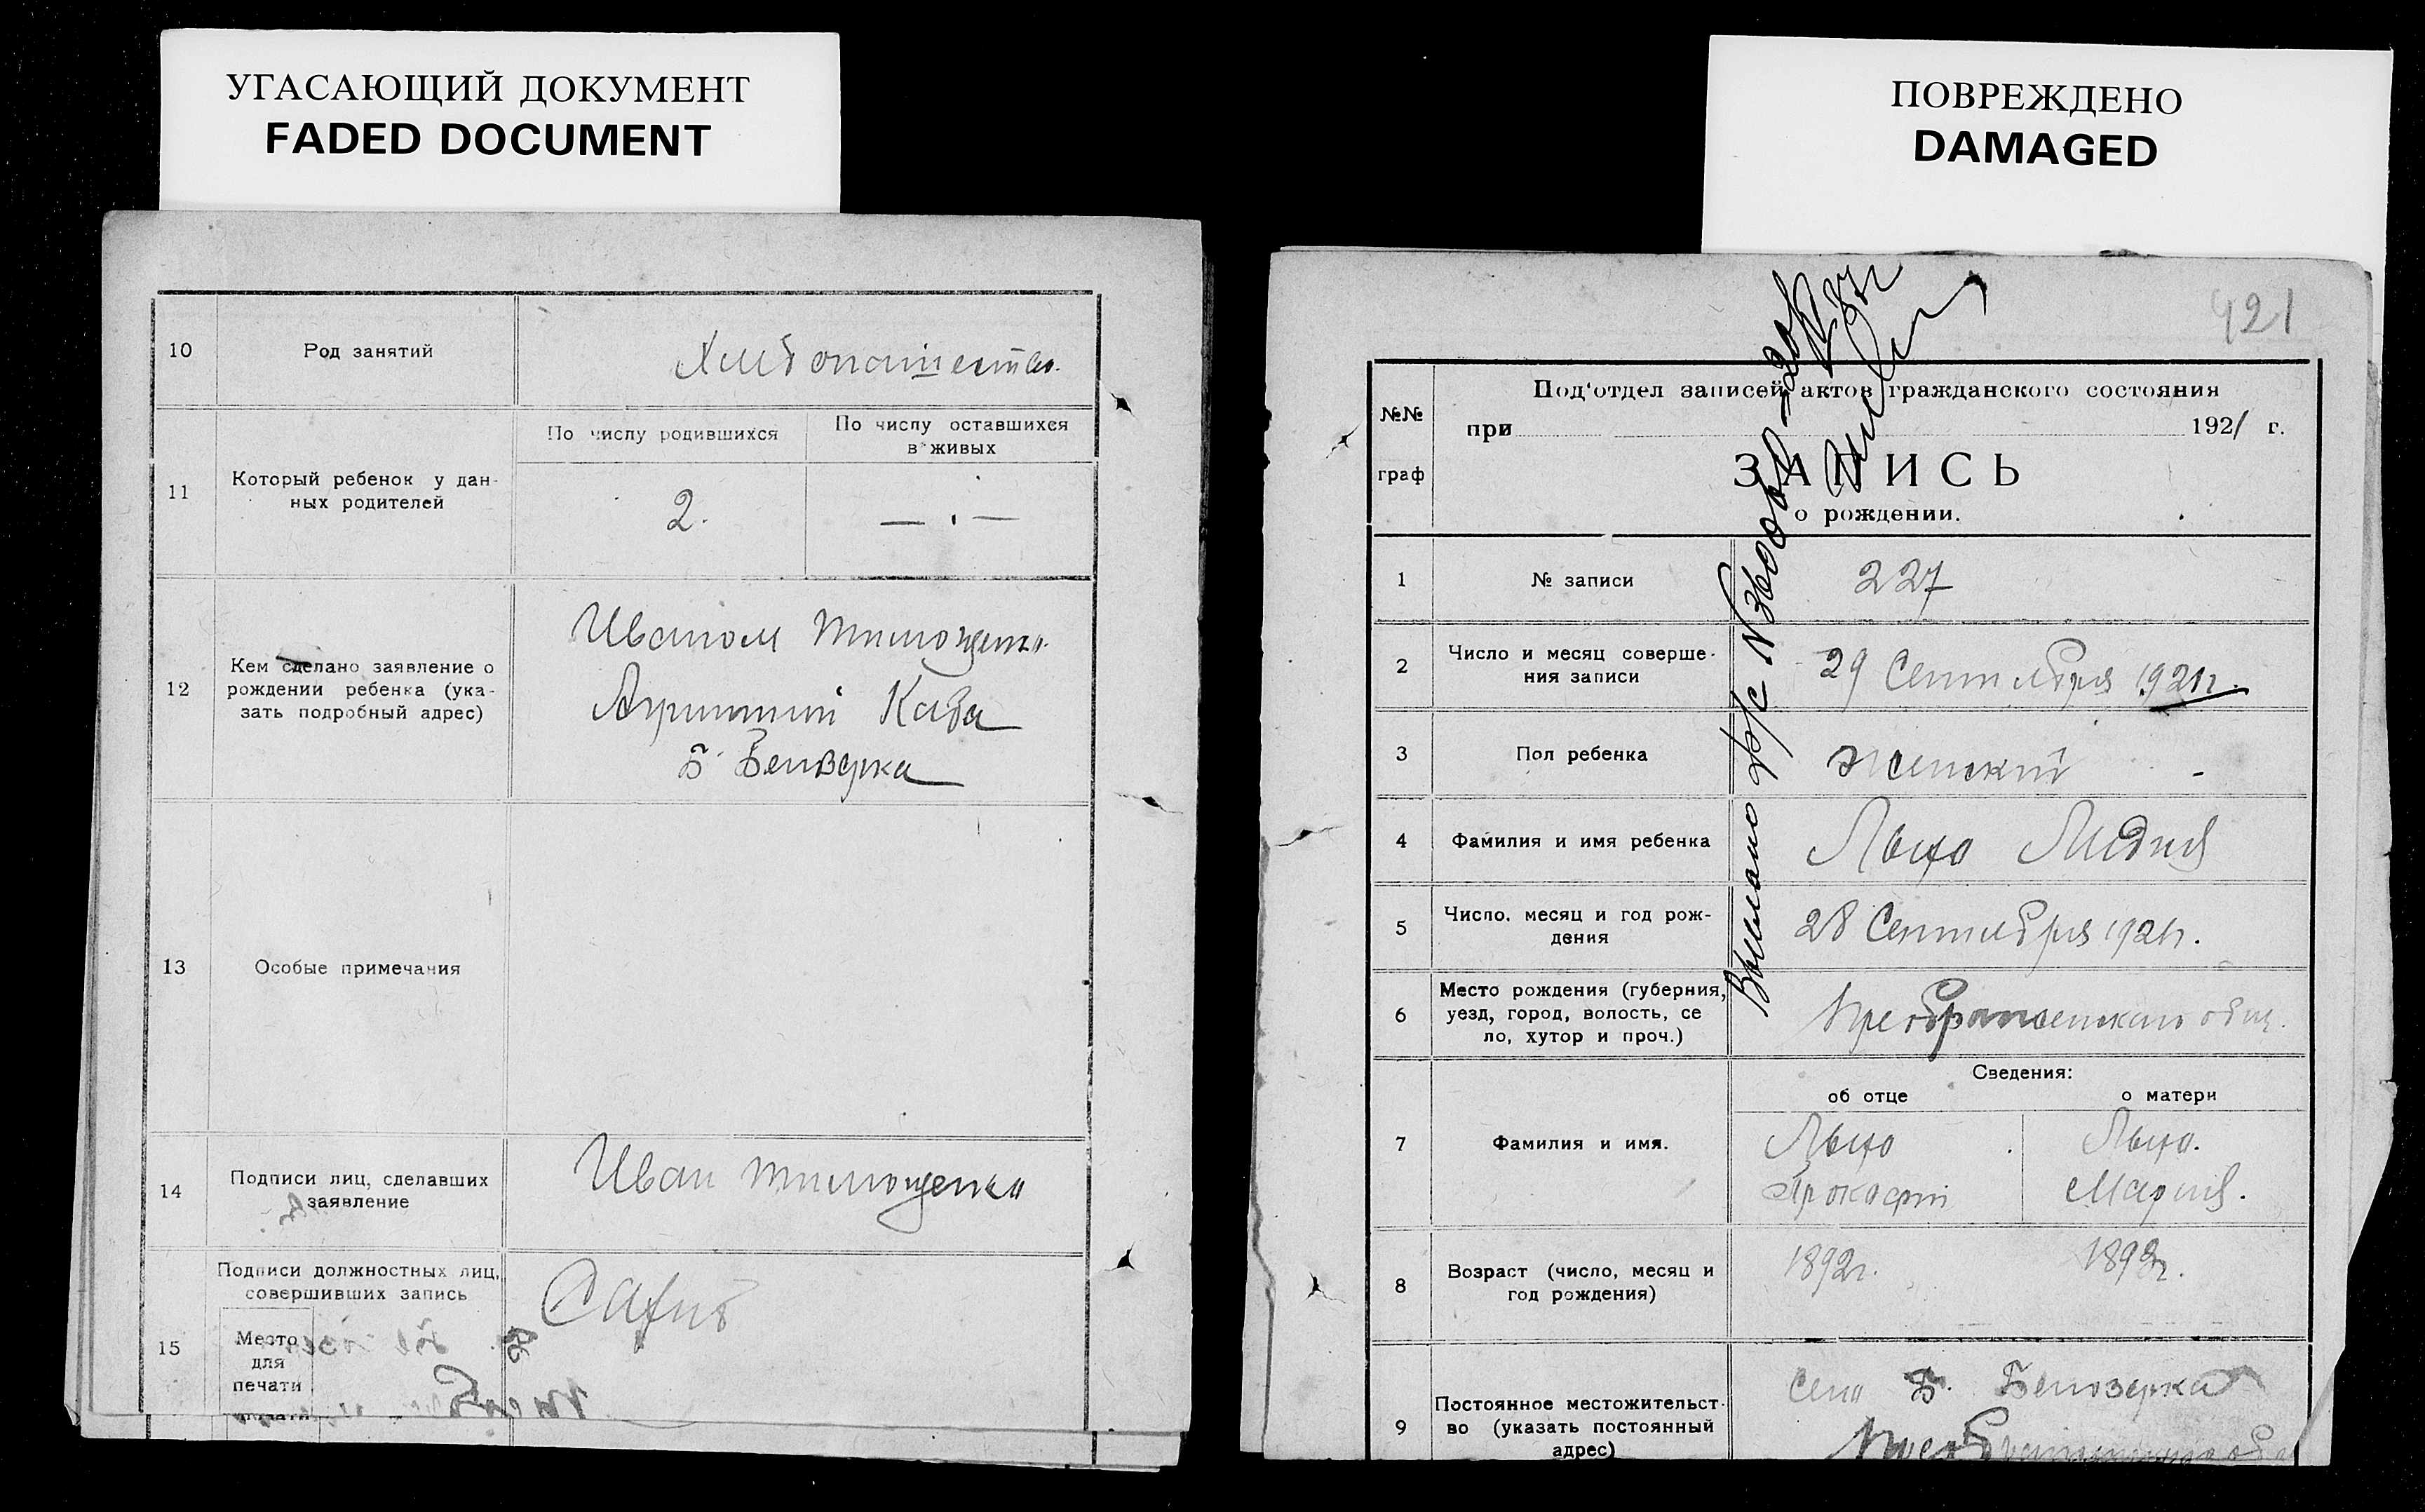 УГАСАЮЩИЙ ДОКУМЕНТ
FADED DOCUMENT
10
Род занятий
Хлебопашество.
11
Который ребенок у дан-
ных родителей
По числу родившихся
По числу оставшихся
в живых
2.
— . —
12
Кем сделано заявление о
рождении ребенка (ука-
зать подробный адрес)
Иваном Тимощенко
Б. Белозерка
13
Особые примечания
14
Подписи лиц, сделавших
заявление
Иван Тимощенко
15
Подписи должностных лиц,
совершивших запись
Место
для
печати
ПОВРЕЖДЕНО
DAMAGED
421
№№
граф
Под'отдел записей актов гражданского состояния
при 1921 г.
ЗАПИСЬ
о рождении.
1
№ записи
227
2
Число и месяц соверше-
ния записи
29 Сентября 1921 г.
3
Пол ребенка
женский
4
Фамилия и имя ребенка
Лыхо Лидия
5
Число, месяц и год рож-
дения
28 Сентября 1921 г.
6
Место рождения (губерния,
уезд, город, волость, се
ло, хутор и проч.)
7
Фамилия и имя.
Сведения:
об отце
о матери
Лыхо
Прокофий
Лыхо.
Мария.
8
Возраст (число, месяц и
год рождения)
1892 г.
9
Постоянное местожительст-
во (указать постоянный
адрес)
Село Б. Белозерка